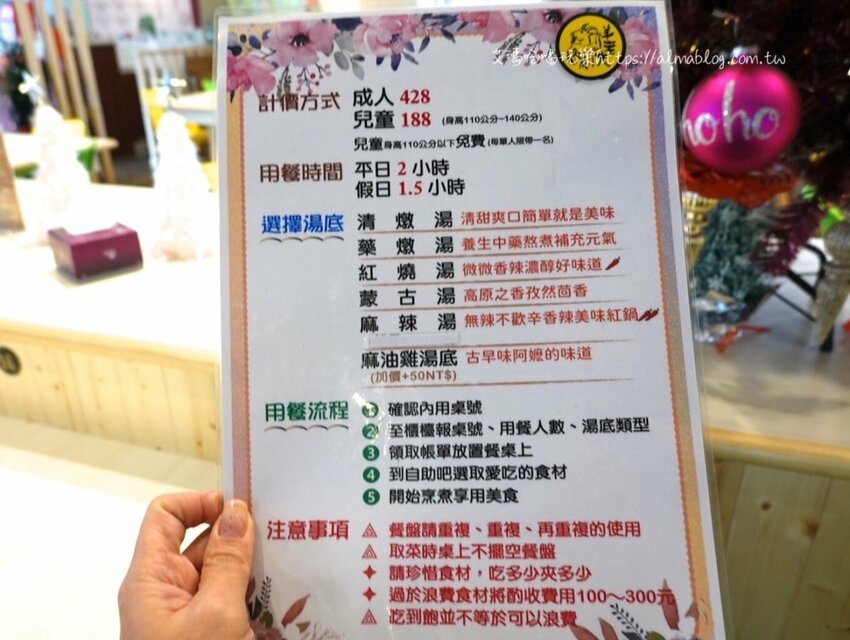 艾瑪吃喝玩樂https://almablog.com.tw
計價方式 成人 428
兒童 188 (身高110公分~140公分)
兒童身高110公分以下免費(每單人限帶一名)
用餐時間 平日 2 小時
假日 1.5 小時
選擇湯底 清燉湯 清甜爽口簡單就是美味
藥燉湯 養生中藥熬煮補充元氣
紅燒湯 微微香辣濃醇好味道
蒙古湯 高原之香孜然茴香
麻辣湯 無辣不歡辛香辣美味紅鍋
麻油雞湯底 古早味阿嬤的味道
(加價+50NT$)
用餐流程 1 確認內用桌號
2 至櫃檯報桌號、用餐人數、湯底類型
3 領取帳單放置餐桌上
4 到自助吧選取愛吃的食材
5 開始烹煮享用美食
注意事項 餐盤請重複、重複、再重複的使用
取菜時桌上不擺空餐盤
請珍惜食材，吃多少夾多少
過於浪費食材將酌收費用100~300元
吃到飽並不等於可以浪費
hoho